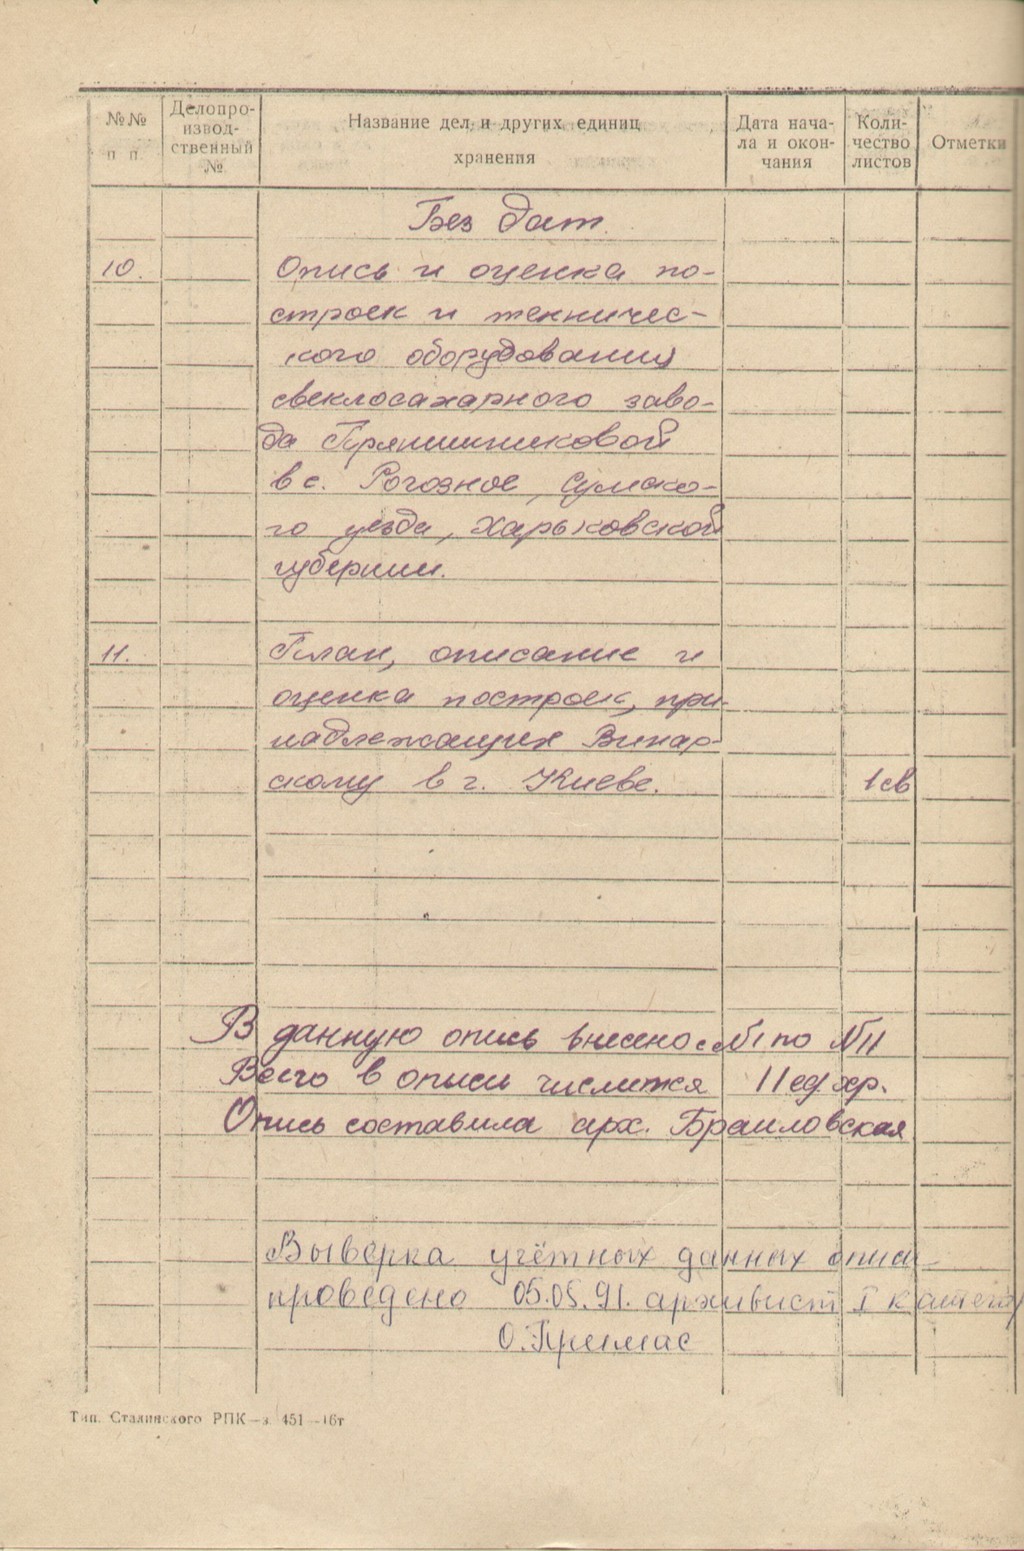 №№ п п.
Делопро-
извод-
ственный
№
Название дел и других единиц
хранения
Дата нача-
ла и окон-
чания
Коли-
чество
листов
Отметки
Без дат.
10. Опись и оценка по-
строек и техничес-
кого оборудования
свеклосахарного заво-
да Прянишниковой
в с. Рогозное, Сумско-
го уезда, Харьковской
губернии.
11. План, описание и
оценка построек, при-
надлежащих Винар-
скому в г. Киеве. 1 св
В данную опись внесено с №1 по №11
Всего в описи числится 11 ед. хр.
Опись составила арх. Браиловская
Выверка учётных данных описи
проведено 05.05.91. архивист I
О. Примас
Тип. Сталинского РПК—з 451—16т